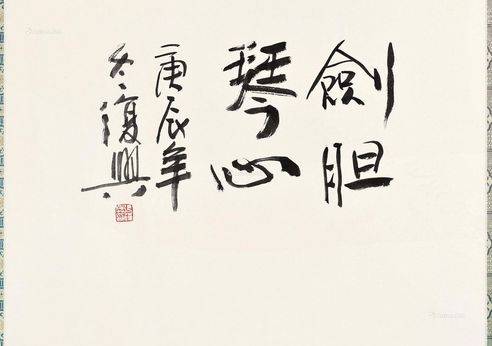 劍胆
琴心
庚辰年
冬復興